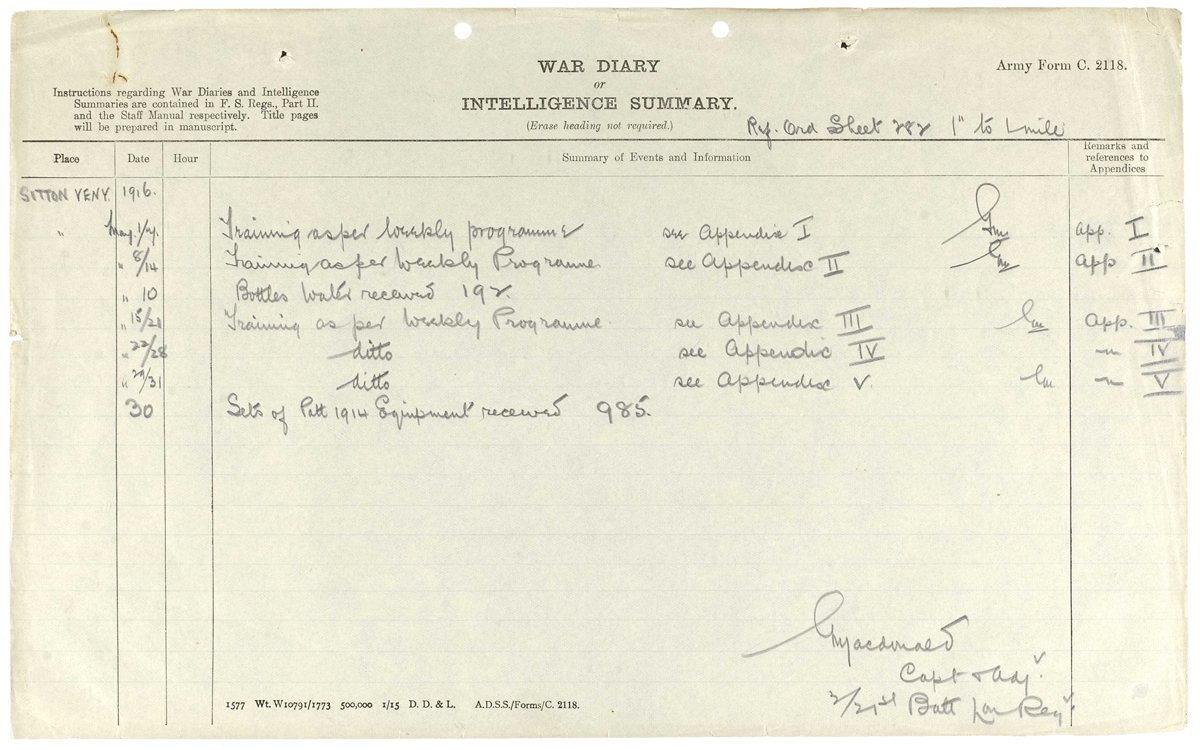 WAR DIARY
or
INTELLIGENCE SUMMARY.
(Erase heading not required.)
Army Form C. 2118.
Instructions regarding War Diaries and Intelligence
Summaries are contained in F. S. Regs., Part II.
and the Staff Manual respectively. Title pages
will be prepared in manuscript.
Ref. Ord Sheet 282 1" to 1 mile
Place Date Hour Summary of Events and Information Remarks and references to Appendices
SITTON VENY. 1916.
" May. 1/7. Training as per Weekly programme see Appendix I Gm app. I
" 8/14 Training as per Weekly Programme. see Appendix II Gm app II
" 10 Bottles Water received 192.
" 15/21 Training as per Weekly Programme. see Appendix III Gm app. III
" 22/28 ditto see Appendix IV — IV
" 29/31 ditto see Appendix V. Gm — V
30 Sets of Patt 1914 Equipment received 985.
GMacdonald
Capt & Adj.
2/21st Batt Lon Regt.
1577 Wt. W10791/1773 500,000 1/15 D. D. & L. A.D.S.S./Forms/C. 2118.